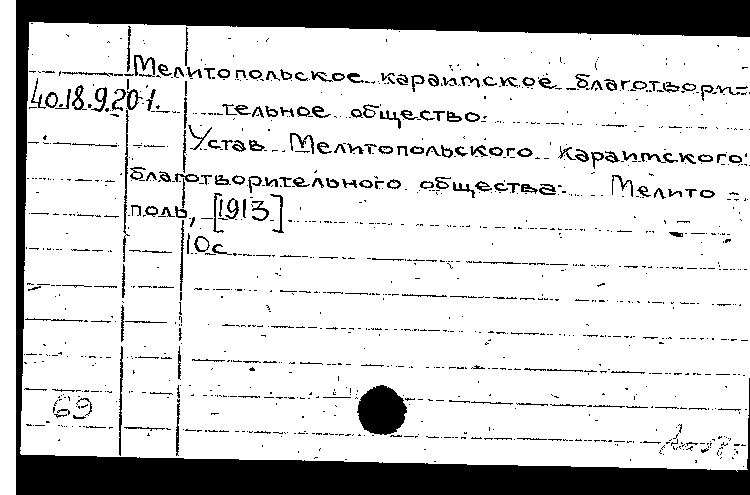 Мелитопольское караимское благотвори=
40.18.9.201. тельное общество.
Устав Мелитопольского караимского
благотворительного общества. Мелито=
поль, [1913]
10с
69